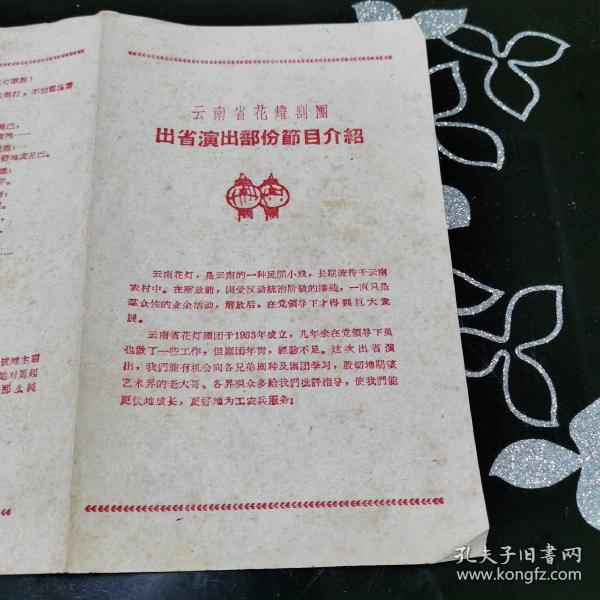 云南省花燈剧團
出省演出部份節目介紹
云南花灯，是云南的一种民間小戏，长期流传于云南
农村中。在解放前，因受反动統治阶級的摧残，一直只是
羣众性的业余活动，解放后，在党领导下才得到巨大发
展。
云南省花灯剧团于1953年成立，几年来在党领导下虽
也做了一些工作，但剧团年青，經驗不足。这次出省演
出，我們能有机会向各兄弟剧种及剧团学习，殷切地期望
艺术界的老大哥、各界观众多給我們批評指导，使我們能
更快地成长，更好地为工农兵服务！
灯歌舞）
不怕雪压霜
地演泥巴。
被地主霸
他对周超
那么純
孔夫子旧书网
www.kongfz.com